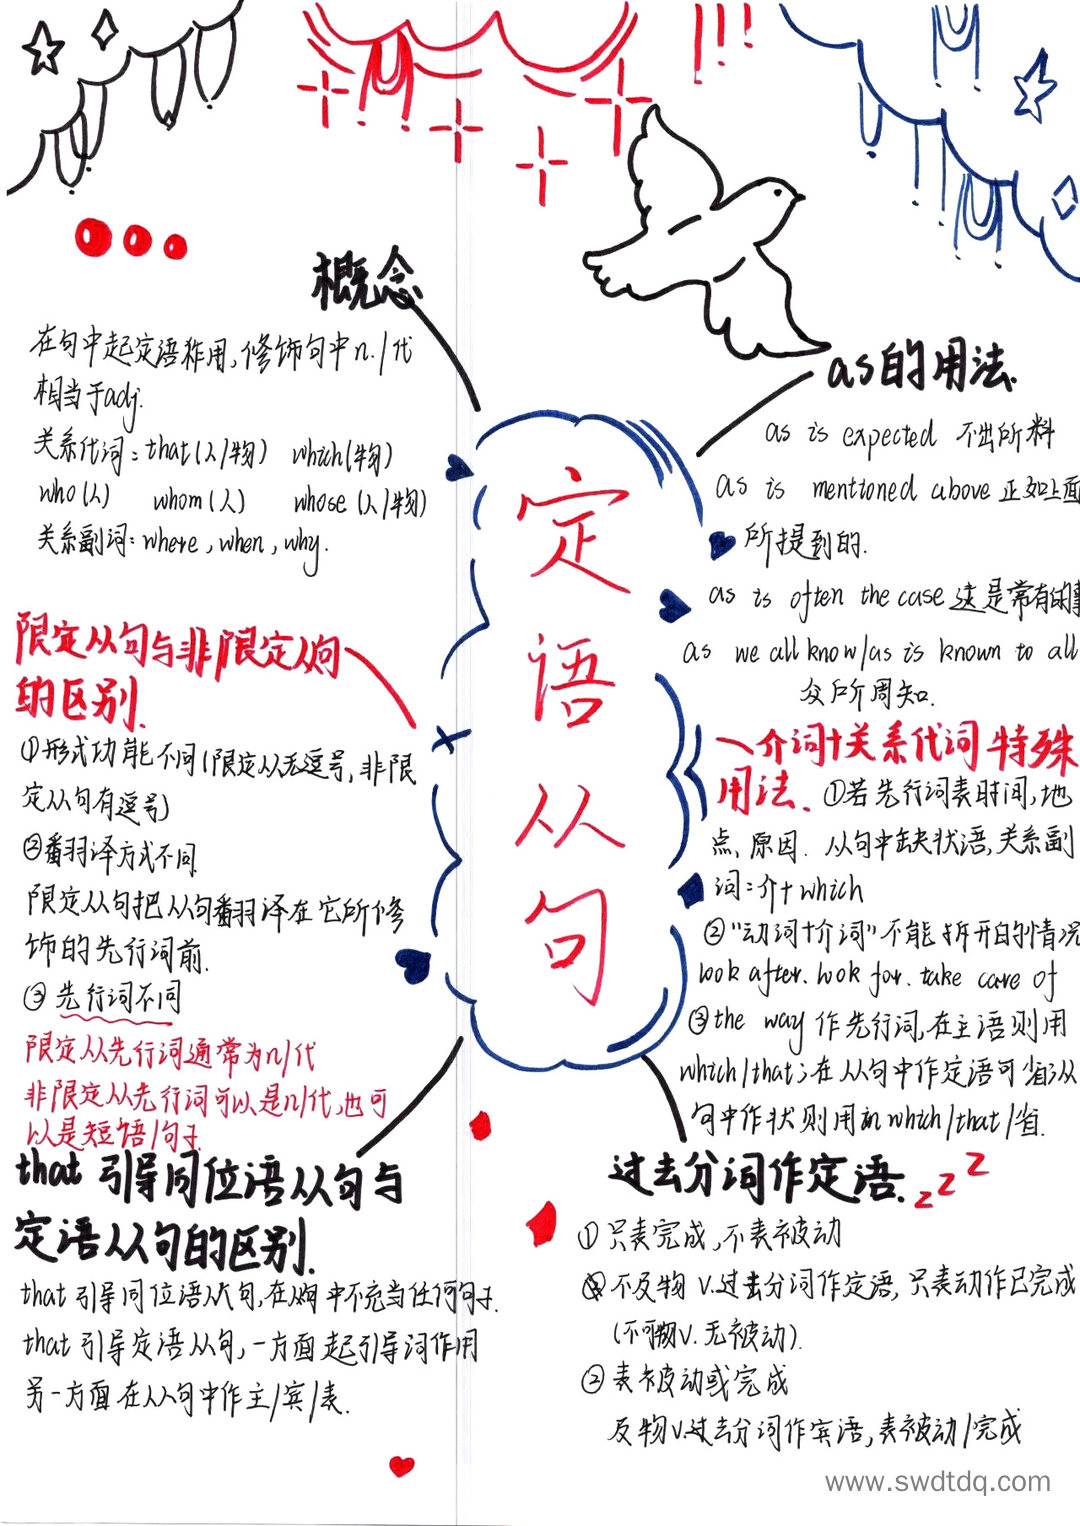 概念
在句中起定语作用,修饰句中n./代
相当于adj.
关系代词:that(人/物) which(物)
who(人) whom(人) whose(人/物)
关系副词:where,when,why.
限定从句与非限定从句
的区别.
①形式功能不同(限定从无逗号,非限
定从句有逗号)
②翻译方式不同.
限定从句把从句翻译在它所修
饰的先行词前.
③先行词不同
限定从先行词通常为n/代
非限定从先行词可以是n/代,也可
以是短语/句子.
that引导同位语从句与
定语从句的区别.
that引导同位语从句,在从句中不充当任何句子.
that引导定语从句,一方面起引导词作用
另一方面在从句中作主/宾/表.
定
语
从
句
as的用法.
as is expected 不出所料
as is mentioned above 正如上面
所提到的.
as is often the case 这是常有的事
as we all know/as is known to all
众所周知.
介词+关系代词 特殊
用法. ①若先行词表时间,地
点,原因. 从句中缺状语,关系副
词=介+which
②"动词+介词"不能拆开的情况
look after. look for. take care of
③the way 作先行词,在主语则用
which/that;在从句中作定语可省;从
句中作状则用in which/that/省.
过去分词作定语. zzz
①只表完成,不表被动
不及物v.过去分词作定语,只表动作已完成
(不可物v.无被动).
②表被动或完成
及物v.过去分词作宾语,表被动/完成
www.swdtdq.com